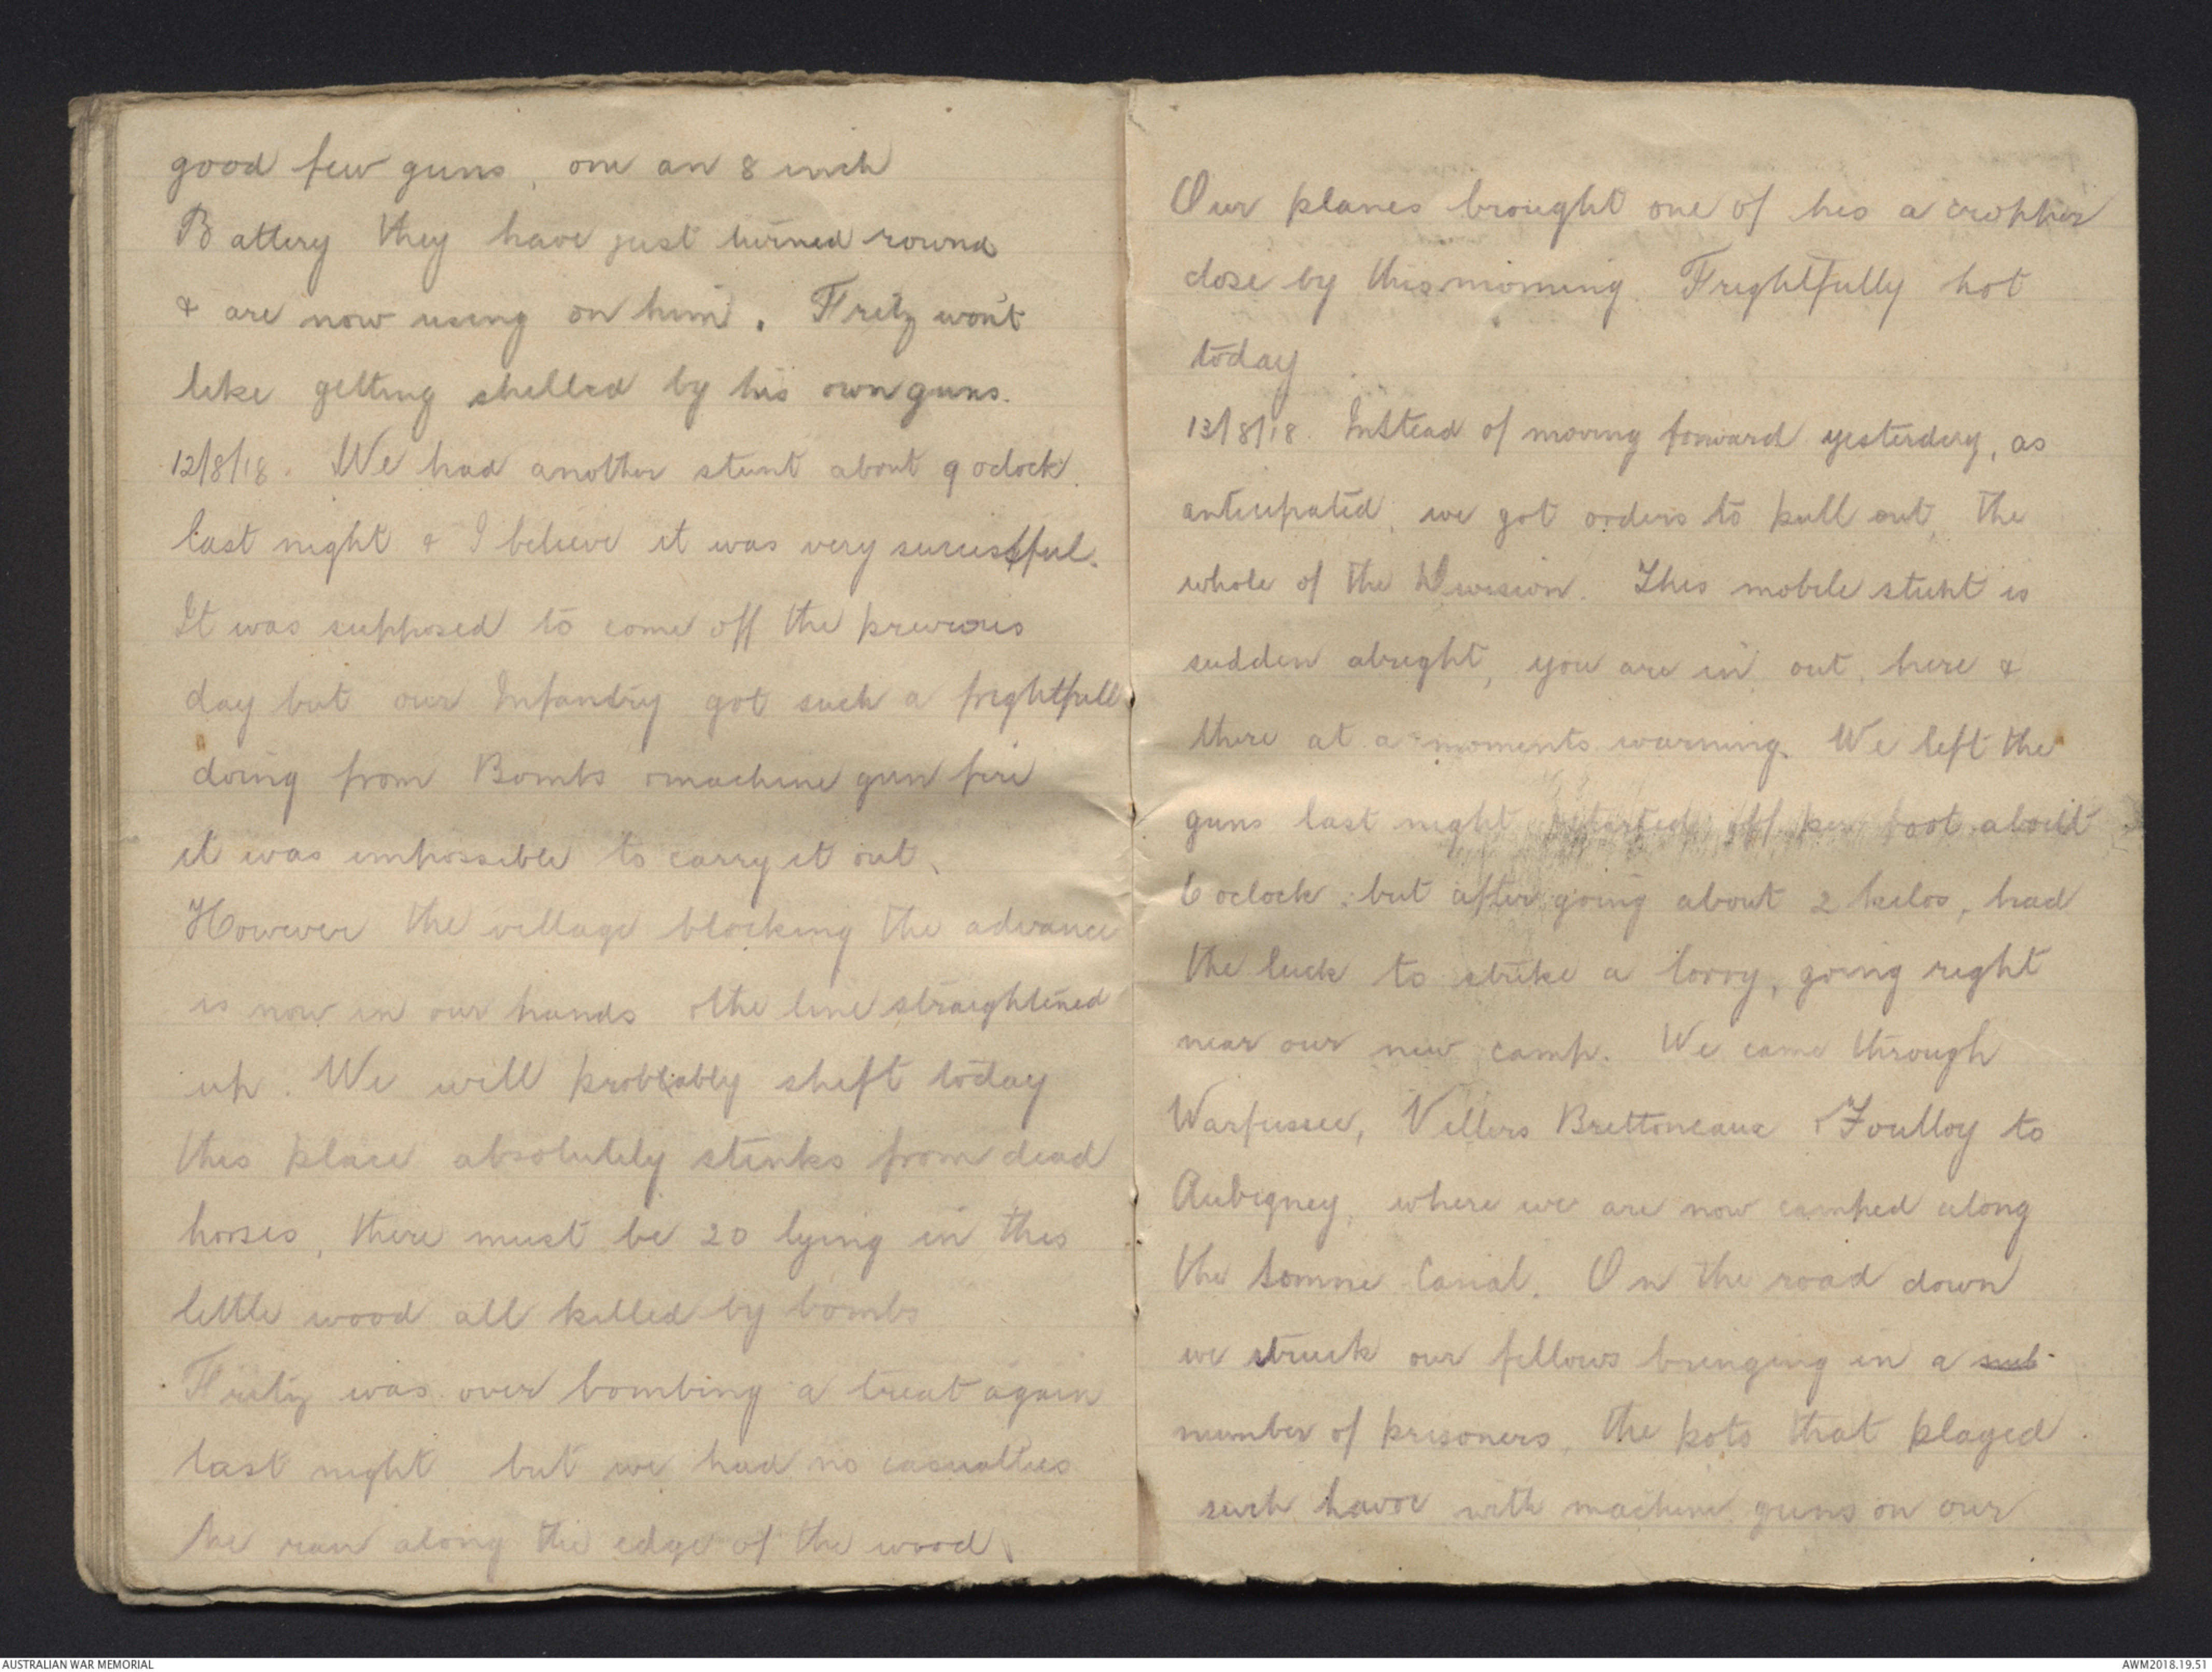 good few guns, one an 8 inch
Battery they have just turned round
& are now using on him. Fritz won't
like getting shelled by his own guns.
12/8/18. We had another stunt about 9 oclock
last night & I believe it was very sucessful.
It was supposed to come off the previous
day but our Infantry got such a frightfull
doing from Bombs & machine gun fire
it was impossible to carry it out.
However the village blocking the advance
is now in our hands & the line straightened
up. We will probably shift today
this place absolutely stinks from dead
horses, there must be 20 lying in this
little wood all killed by bombs
Fritz was over bombing a treat again
last night but we had no casualties
he ran along the edge of the wood.
Our planes brought one of his a cropper
close by this morning. Frightfully hot
today
13/8/18. Instead of moving forward yesterday, as
anticipated, we got orders to pull out, the
whole of the Division. This mobile stunt is
sudden alright, you are in, out, here &
there at a moments warning. We left the
guns last night & started off per foot about
6 oclock, but after going about 2 kilos, had
the luck to strike a lorry, going right
near our new camp. We came through
Warfussee, Villers Brettoneaux & Fouilloy to
Aubigney, where we are now camped along
the Somme Canal. On the road down
we struck our fellows bringing in a sub
number of prisoners, the pots that played
such havoc with machine guns on our
AUSTRALIAN WAR MEMORIAL
AWM2018.19.51